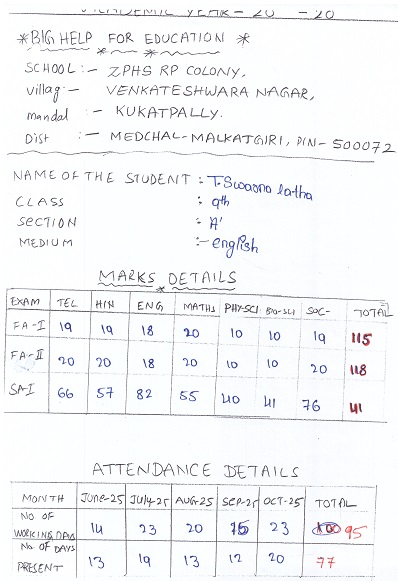 ACADEMIC YEAR - 20 - 20
*BIG HELP FOR EDUCATION *
SCHOOL :- ZPHS RP COLONY,
Villag :- VENKATESHWARA NAGAR,
mandal :- KUKATPALLY.
Dist :- MEDCHAL-MALKATGIRI, PIN-500072
NAME OF THE STUDENT : T. Swarna latha
CLASS : 9th
SECTION : 'A'
MEDIUM :- english
MARKS DETAILS
EXAM TEL HIN ENG MATHS PHY-SCI BIO-SCI SOC- TOTAL
FA-I 19 19 18 20 10 10 19 115
FA-II 20 20 18 20 10 10 20 118
SA-I 66 57 82 55 40 41 76 41
ATTENDANCE DETAILS
MONTH June-25 July-25 AUG-25 SEP-25 OCT-25 TOTAL
NO OF WORKING DAYS 14 23 20 15 23 95
NO OF DAYS PRESENT 13 19 13 12 20 77